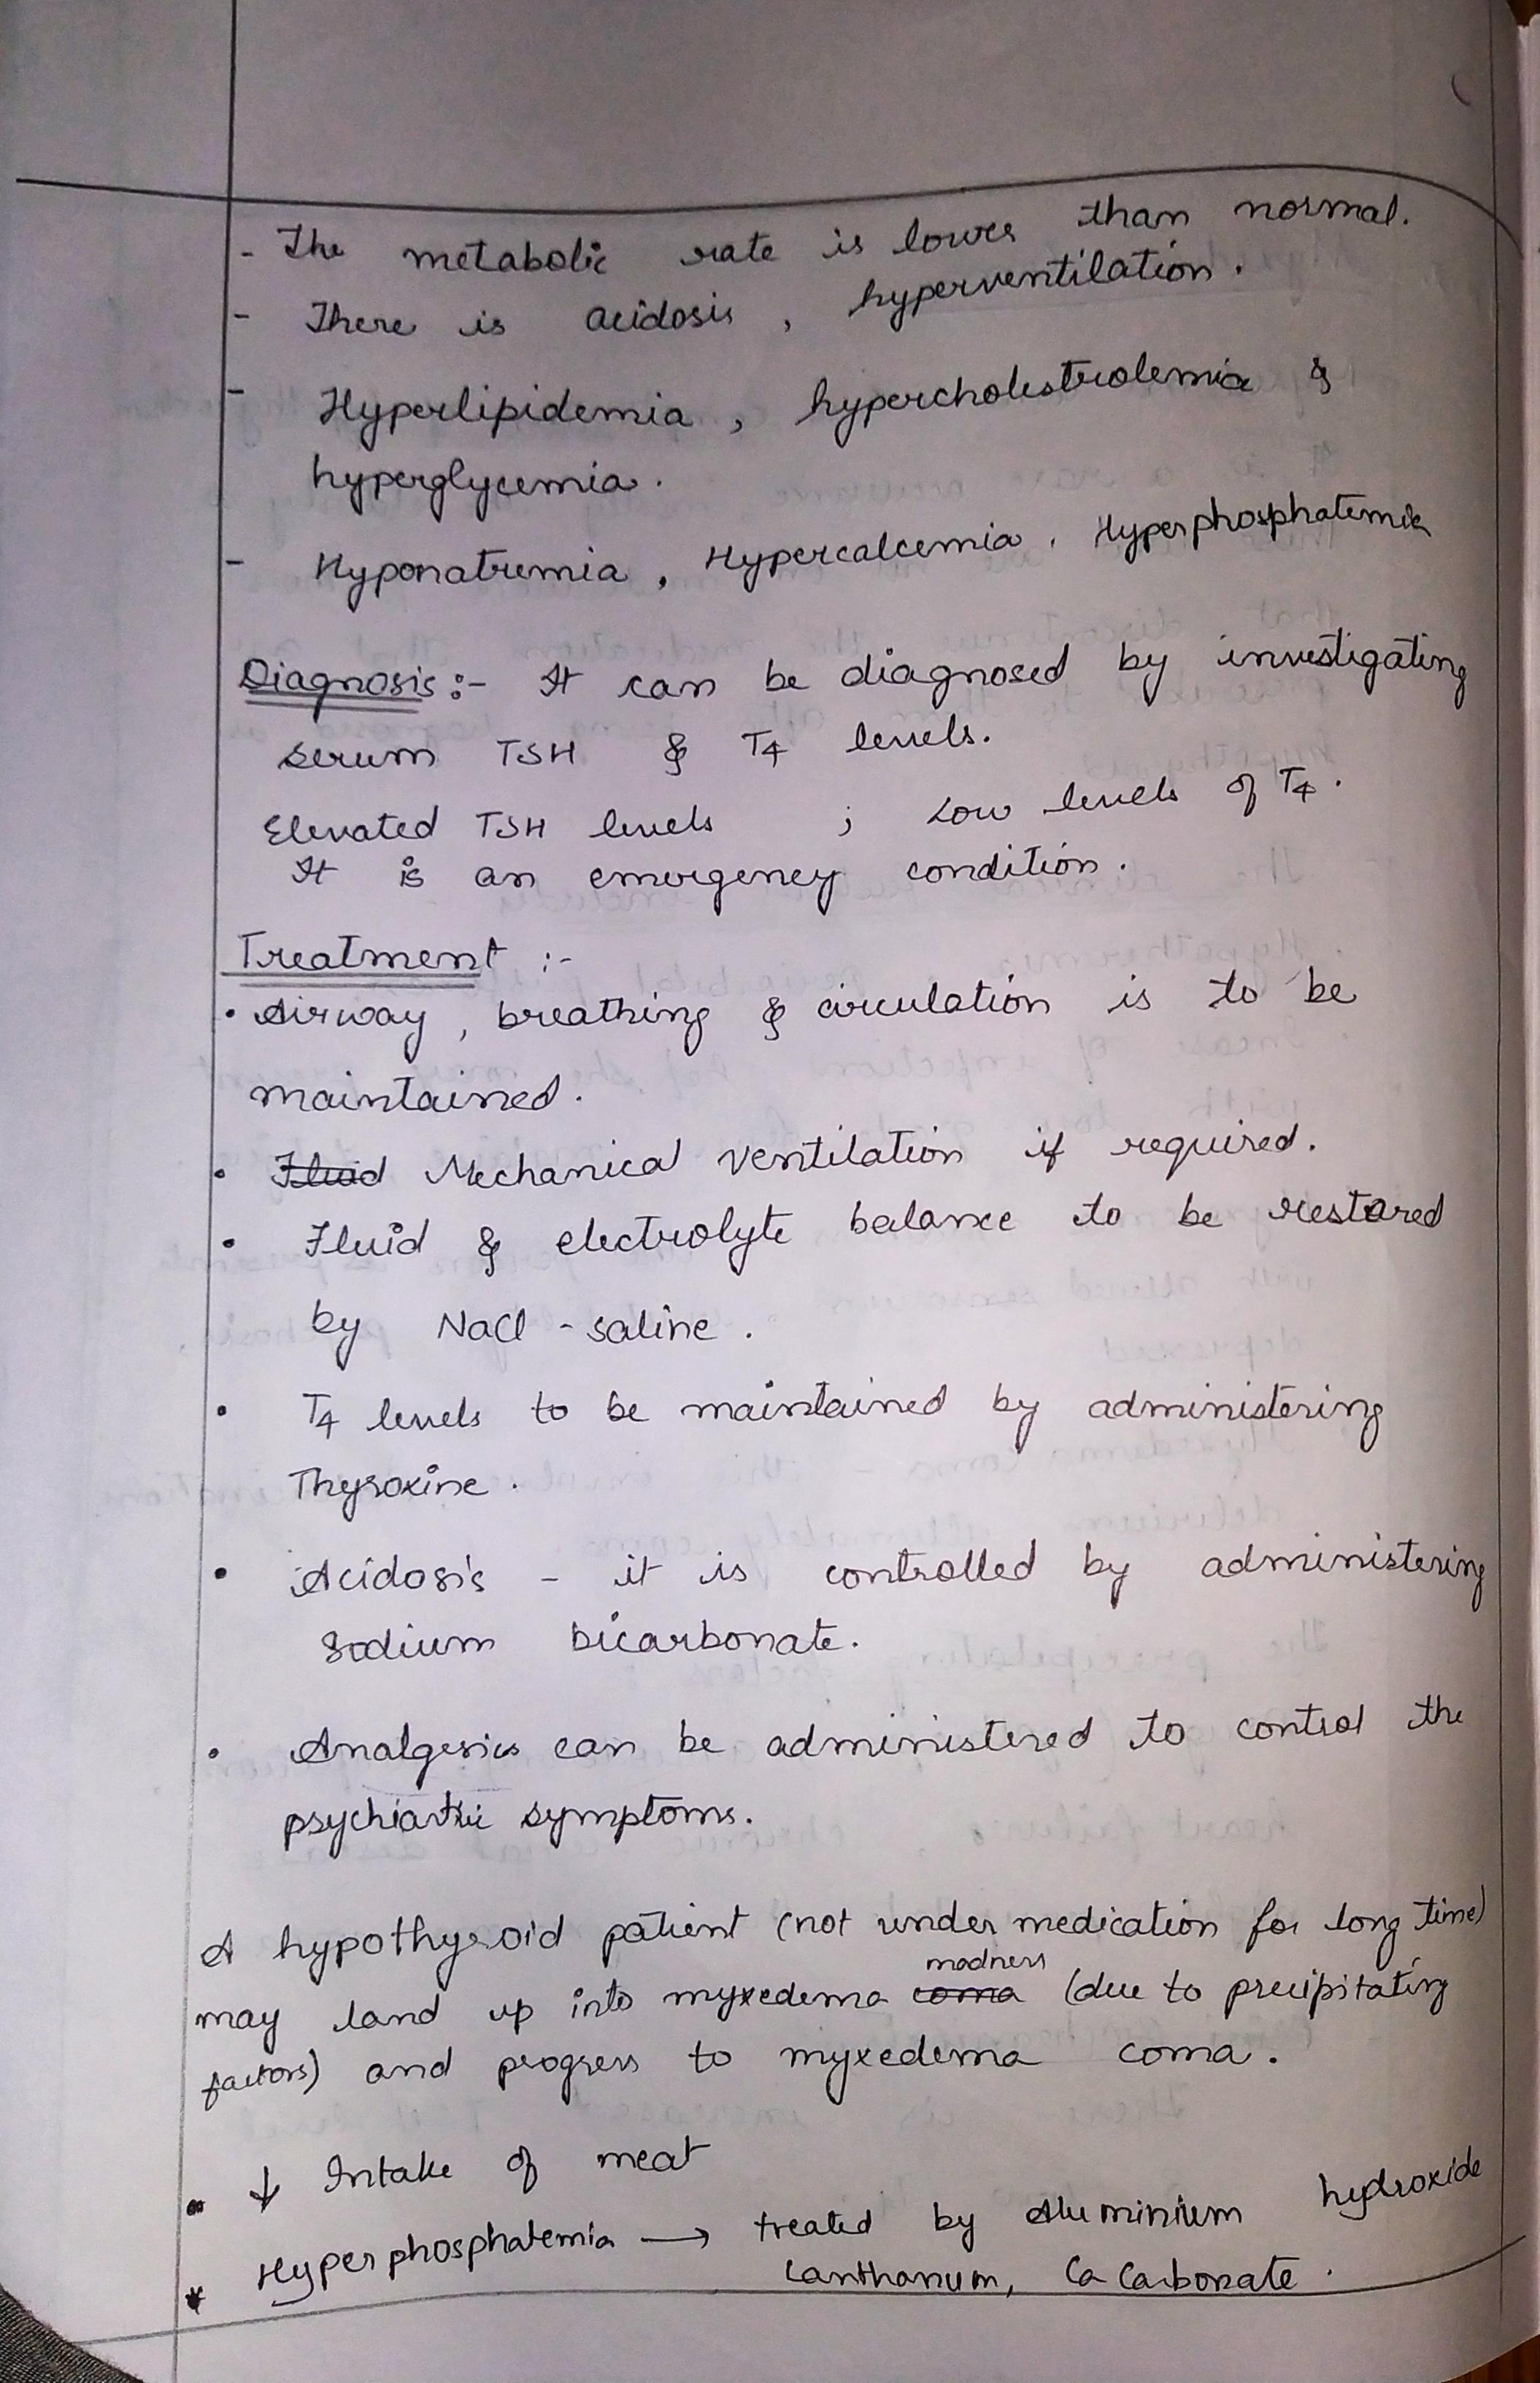 - The metabolic rate is lower than normal.
- There is acidosis, hyperventilation.
- Hyperlipidemia, hypercholestrolemia &
hyperglycemia.
- Hyponatremia, Hypercalcemia, Hyperphosphatemia
Diagnosis:- It can be diagnosed by investigating
serum TSH & T4 levels.
Elevated TSH levels ; Low levels of T4.
It is an emergency condition.
Treatment :-
• Airway, breathing & circulation is to be
maintained.
• Fluid Mechanical ventilation if required.
• Fluid & electrolyte balance to be restored
by NaCl - saline.
• T4 levels to be maintained by administering
Thyroxine.
• Acidosis - it is controlled by administering
Sodium bicarbonate.
• Analgesics can be administered to control the
psychiatric symptoms.
A hypothyroid patient (not under medication for long time)
madness
may land up into myxedema coma (due to precipitating
factors) and progress to myxedema coma.
• ↓ Intake of meat
* Hyperphosphatemia → treated by Aluminium hydroxide
Lanthanum, Ca Carbonate.